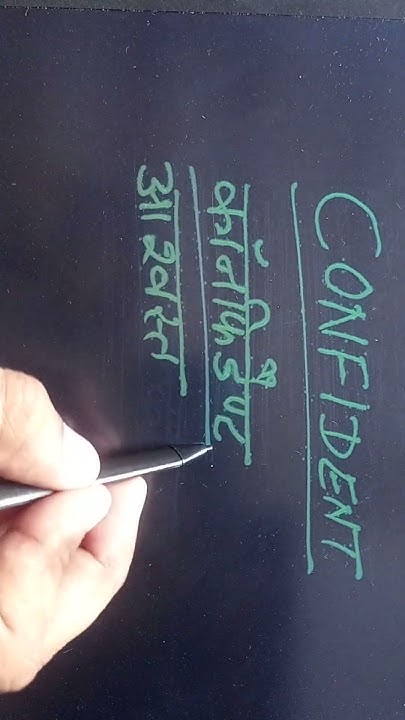 CONFIDENT
कॉनफिडेंण्ट
आश्वस्त